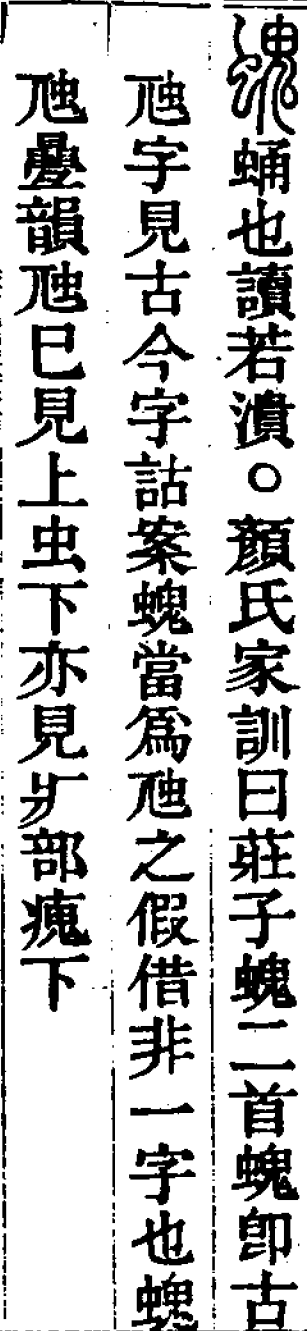 螝蛹也讀若潰○顏氏家訓曰莊子螝二首螝卽古
虺字見古今字詁案螝當爲虺之假借非一字也螝
虺疊韻虺巳見上虫下亦見疒部瘣下